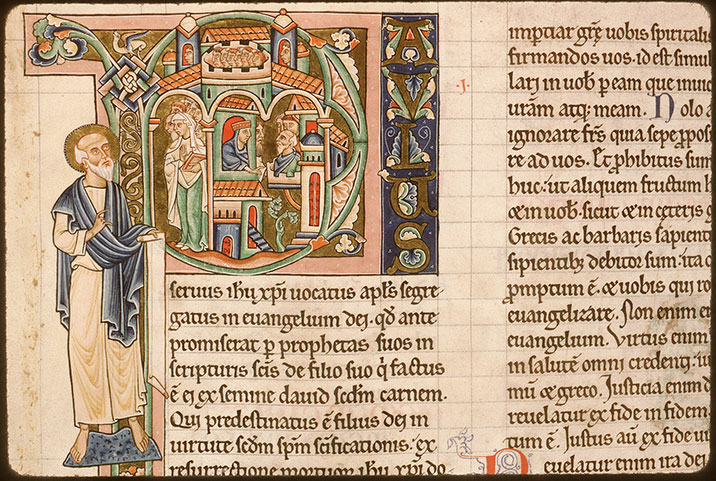 P
A
V
L
U
S
seruus ihu xpi uocatus apls segre
gatus in euangelium dei. qd ante
promiserat p prophetas suos in
scripturis scis de filio suo q factus
ē ei ex semine dauid scdm carnem.
Qui predestinatus ē filius dei in
uirtute scdm spm scificationis: ex
resurrectione mortuorum ihu xpi do
.I.
imptiar grę uobis spiritalis
firmandos uos. id est simul
lari in uob p eam que inuic
uram atq; meam. Nolo a
ignorare frs quia sepe propos
re ad uos. Et phibitus sum
huc: ut aliquem fructum h
& in uob sicut & in ceteris g
Grecis ac barbaris sapient
sipientibz debitor sum: ita q
promptum ē & uobis qui ro
euangelizare. Non enim er
euangelium. Virtus enim
in salutē omni credenti: iu
mū & greco. Justicia enim d
reuelatur ex fide in fidem
tum ē. Justus aū ex fide ui
Reuelatur enim ira dei